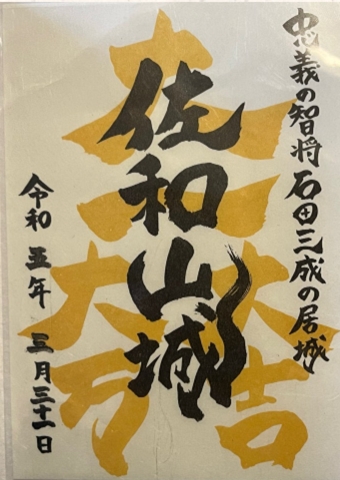 忠義の智将 石田三成の居城
佐和山城
大一大万大吉
令和 五年 三月三十一日